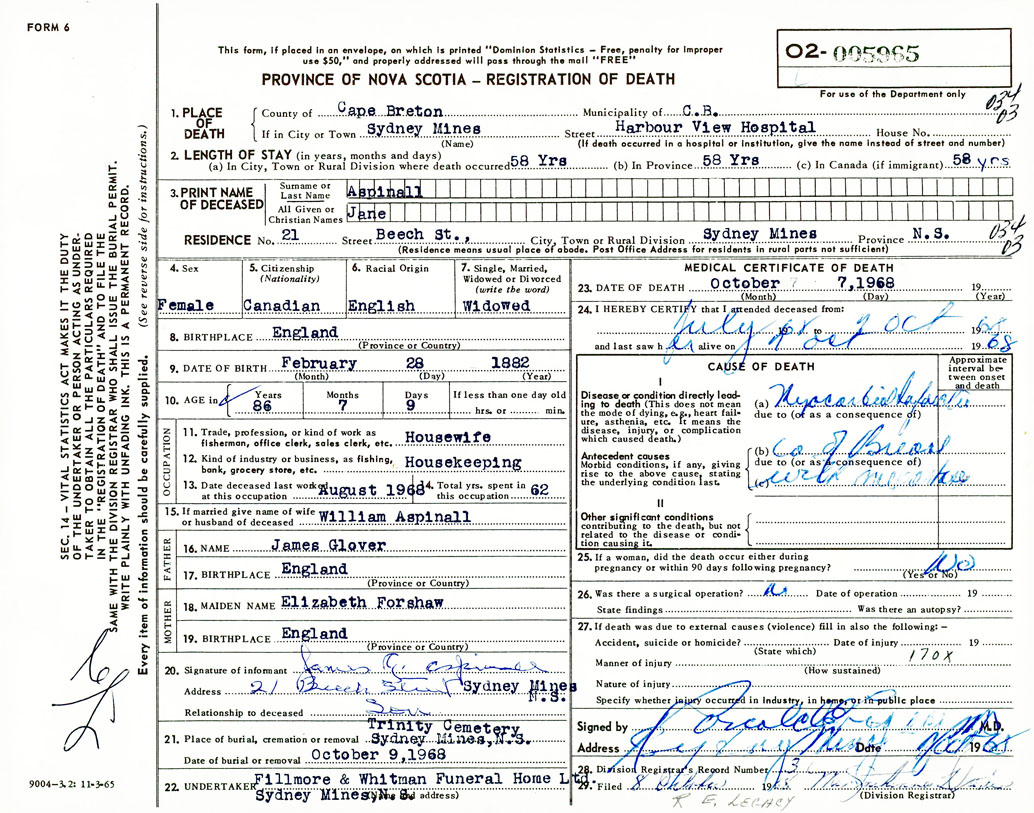 FORM 6
This form, if placed in an envelope, on which is printed "Dominion Statistics – Free, penalty for improper
use $50," and properly addressed will pass through the mail "FREE"
PROVINCE OF NOVA SCOTIA – REGISTRATION OF DEATH
02- 005965
For use of the Department only
034
03
1. PLACE OF DEATH
County of Cape Breton Municipality of C.B.
If in City or Town Sydney Mines Street Harbour View Hospital House No.
(Name) (If death occurred in a hospital or institution, give the name instead of street and number)
2. LENGTH OF STAY (in years, months and days)
(a) In City, Town or Rural Division where death occurred 58 Yrs (b) In Province 58 Yrs (c) In Canada (if immigrant) 58 yrs
3. PRINT NAME OF DECEASED
Surname or Last Name Aspinall
All Given or Christian Names Jane
RESIDENCE No. 21 Street Beech St., City, Town or Rural Division Sydney Mines Province N.S.
034
03
(Residence means usual place of abode. Post Office Address for residents in rural parts not sufficient)
4. Sex Female
5. Citizenship (Nationality) Canadian
6. Racial Origin English
7. Single, Married, Widowed or Divorced (write the word) Widowed
8. BIRTHPLACE England
(Province or Country)
9. DATE OF BIRTH February 28 1882
(Month) (Day) (Year)
10. AGE in Years 86 Months 7 Days 9 If less than one day old hrs. or min.
OCCUPATION
11. Trade, profession, or kind of work as
fisherman, office clerk, sales clerk, etc. Housewife
12. Kind of industry or business, as fishing,
bank, grocery store, etc. Housekeeping
13. Date deceased last worked at this occupation August 1968 14. Total yrs. spent in this occupation 62
15. If married give name of wife
or husband of deceased William Aspinall
FATHER
16. NAME James Glover
17. BIRTHPLACE England
(Province or Country)
MOTHER
18. MAIDEN NAME Elizabeth Forshaw
19. BIRTHPLACE England
(Province or Country)
20. Signature of informant James G. Aspinall
Address 21 Beech Street Sydney Mines
N.S.
Relationship to deceased Son
Trinity Cemetery
21. Place of burial, cremation or removal Sydney Mines, N.S.
Date of burial or removal October 9,1968
22. UNDERTAKER Fillmore & Whitman Funeral Home Ltd.
Sydney Mines, N.S. (Name and address)
MEDICAL CERTIFICATE OF DEATH
23. DATE OF DEATH October 7,1968 19
(Month) (Day) (Year)
24. I HEREBY CERTIFY that I attended deceased from:
July 1968 to 7 Oct 1968
and last saw her alive on 7 Oct 1968
CAUSE OF DEATH
Approximate interval between onset and death
I
Disease or condition directly leading
to death (This does not mean
the mode of dying, e.g., heart failure,
asthenia, etc. It means the
disease, injury, or complication
which caused death.)
(a) Myocardial Infarction
due to (or as a consequence of)
Antecedent causes
Morbid conditions, if any, giving
rise to the above cause, stating
the underlying condition last.
(b) Ca of Breast
due to (or as a consequence of)
(c) with
II
Other significant conditions
contributing to the death, but not
related to the disease or condition
causing it.
25. If a woman, did the death occur either during
pregnancy or within 90 days following pregnancy? No
(Yes or No)
26. Was there a surgical operation? No Date of operation 19
State findings Was there an autopsy?
27. If death was due to external causes (violence) fill in also the following: –
Accident, suicide or homicide? Date of injury 19
(State which)
170X
Manner of injury
(How sustained)
Nature of injury
Specify whether injury occurred in industry, in home, or in public place
Signed by M.D.
Address Sydney Mines Date 7 Oct 1968
28. Division Registrar's Record Number 3
29. Filed 8 October 1968
(Division Registrar)
R E. LEGACY
SEC. 14 – VITAL STATISTICS ACT MAKES IT THE DUTY
OF THE UNDERTAKER OR PERSON ACTING AS UNDER-
TAKER TO OBTAIN ALL THE PARTICULARS REQUIRED
IN THE "REGISTRATION OF DEATH" AND TO FILE THE
SAME WITH THE DIVISION REGISTRAR WHO SHALL ISSUE THE BURIAL PERMIT.
WRITE PLAINLY WITH UNFADING INK. THIS IS A PERMANENT RECORD.
Every item of information should be carefully supplied. (See reverse side for instructions.)
9004-3.2: 11-3-65